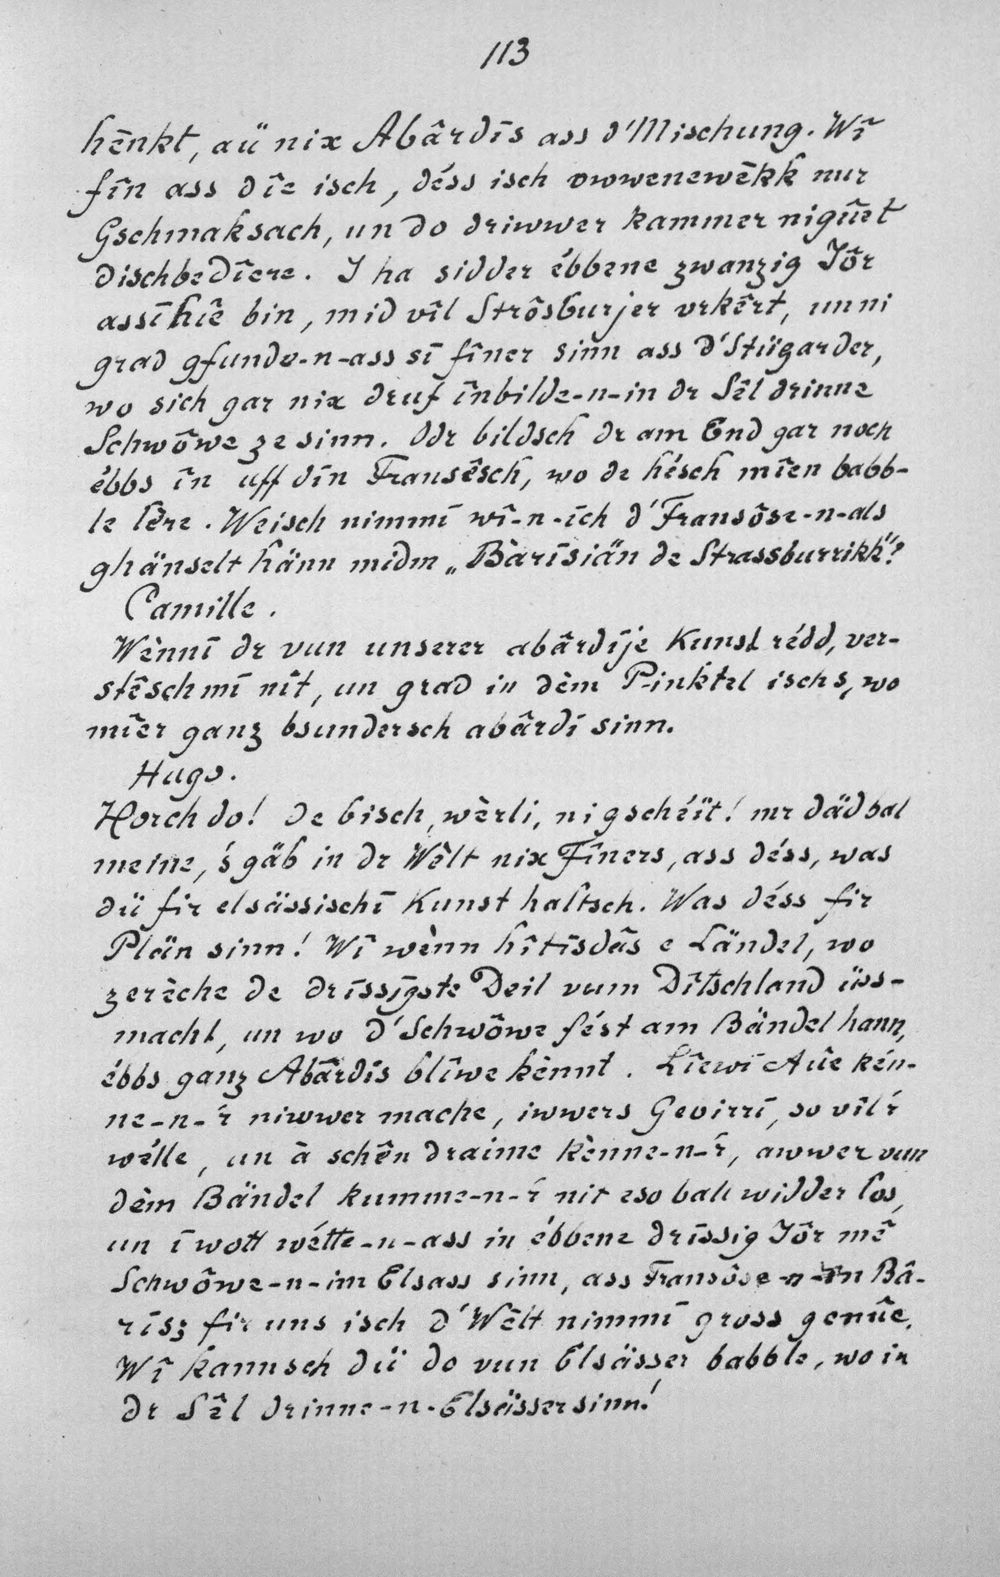 113
hēnkt, aü nix Abârdīs ass d'Mischung. Wî
fîn ass dîe isch, déss isch owwenewēkk nur
Gschmaksach, un do driwwer kammer nigûet
dischbedîere. I ha sidder ébbene zwanzig Jôr
assī hîe bin, mid vîl Strôsburjer vrkêrt, un ni
grad gfunde-n-ass sī fîner sinn ass d'Stügarder,
wo sich gar nix druf înbilde-n-in dr Sêl drinne
Schwôwe ze sinn. Odr bildsch dr am End gar noch
ébbs în uff dīn Fransêsch, wo de hésch mîen babb-
le lêre. Weisch nimmī wî-n-īch d'Fransôse-n-als
ghänselt hänn midm „Bàrīsiän de Strassburrikk"?
Camille.
Wènnī dr vun unserer abârdīje Kunst rédd, ver-
stêsch mī nît, un grad in dèm Pinktel isch s, wo
mîer ganz bsundersch abârdī sinn.
Hugo.
Horch do! de bisch, wèrli, ni gschéït! mr däd bal
meine, 's gäb in dr Wêlt nix Fîners, ass déss, was
dü fir elsässischī Kunst haltsch. Was déss fir
Plän sinn! Wî wènn hîtīsdâs e Ländel, wo
zerèche de drīssīgste Deil vum Dîtschland üss-
macht, un wo d'Schwôwe fést am Bändel hann,
ébbs ganz Abârdīs blîwe kènnt. Lîewī Aüe kén-
ne-n-'r niwwer mache, iwwers Gevirrī, so vîl 'r
wélle, un à schên draime kènne-n-'r, awwer vun
dèm Bändel kumme-n-'r nit eso ball widder los,
un ī wott wétte-n-ass in ébbene drīssig Jôr mê
Schwôwe-n-im Elsass sinn, ass Fransôse-n-in Bâ-
rīsz fir uns isch d'Wêlt nimmī gross genûe.
Wî kannsch dü do vun Elsässer babble, wo in
dr Sêl drinne-n-Elsässer sinn!